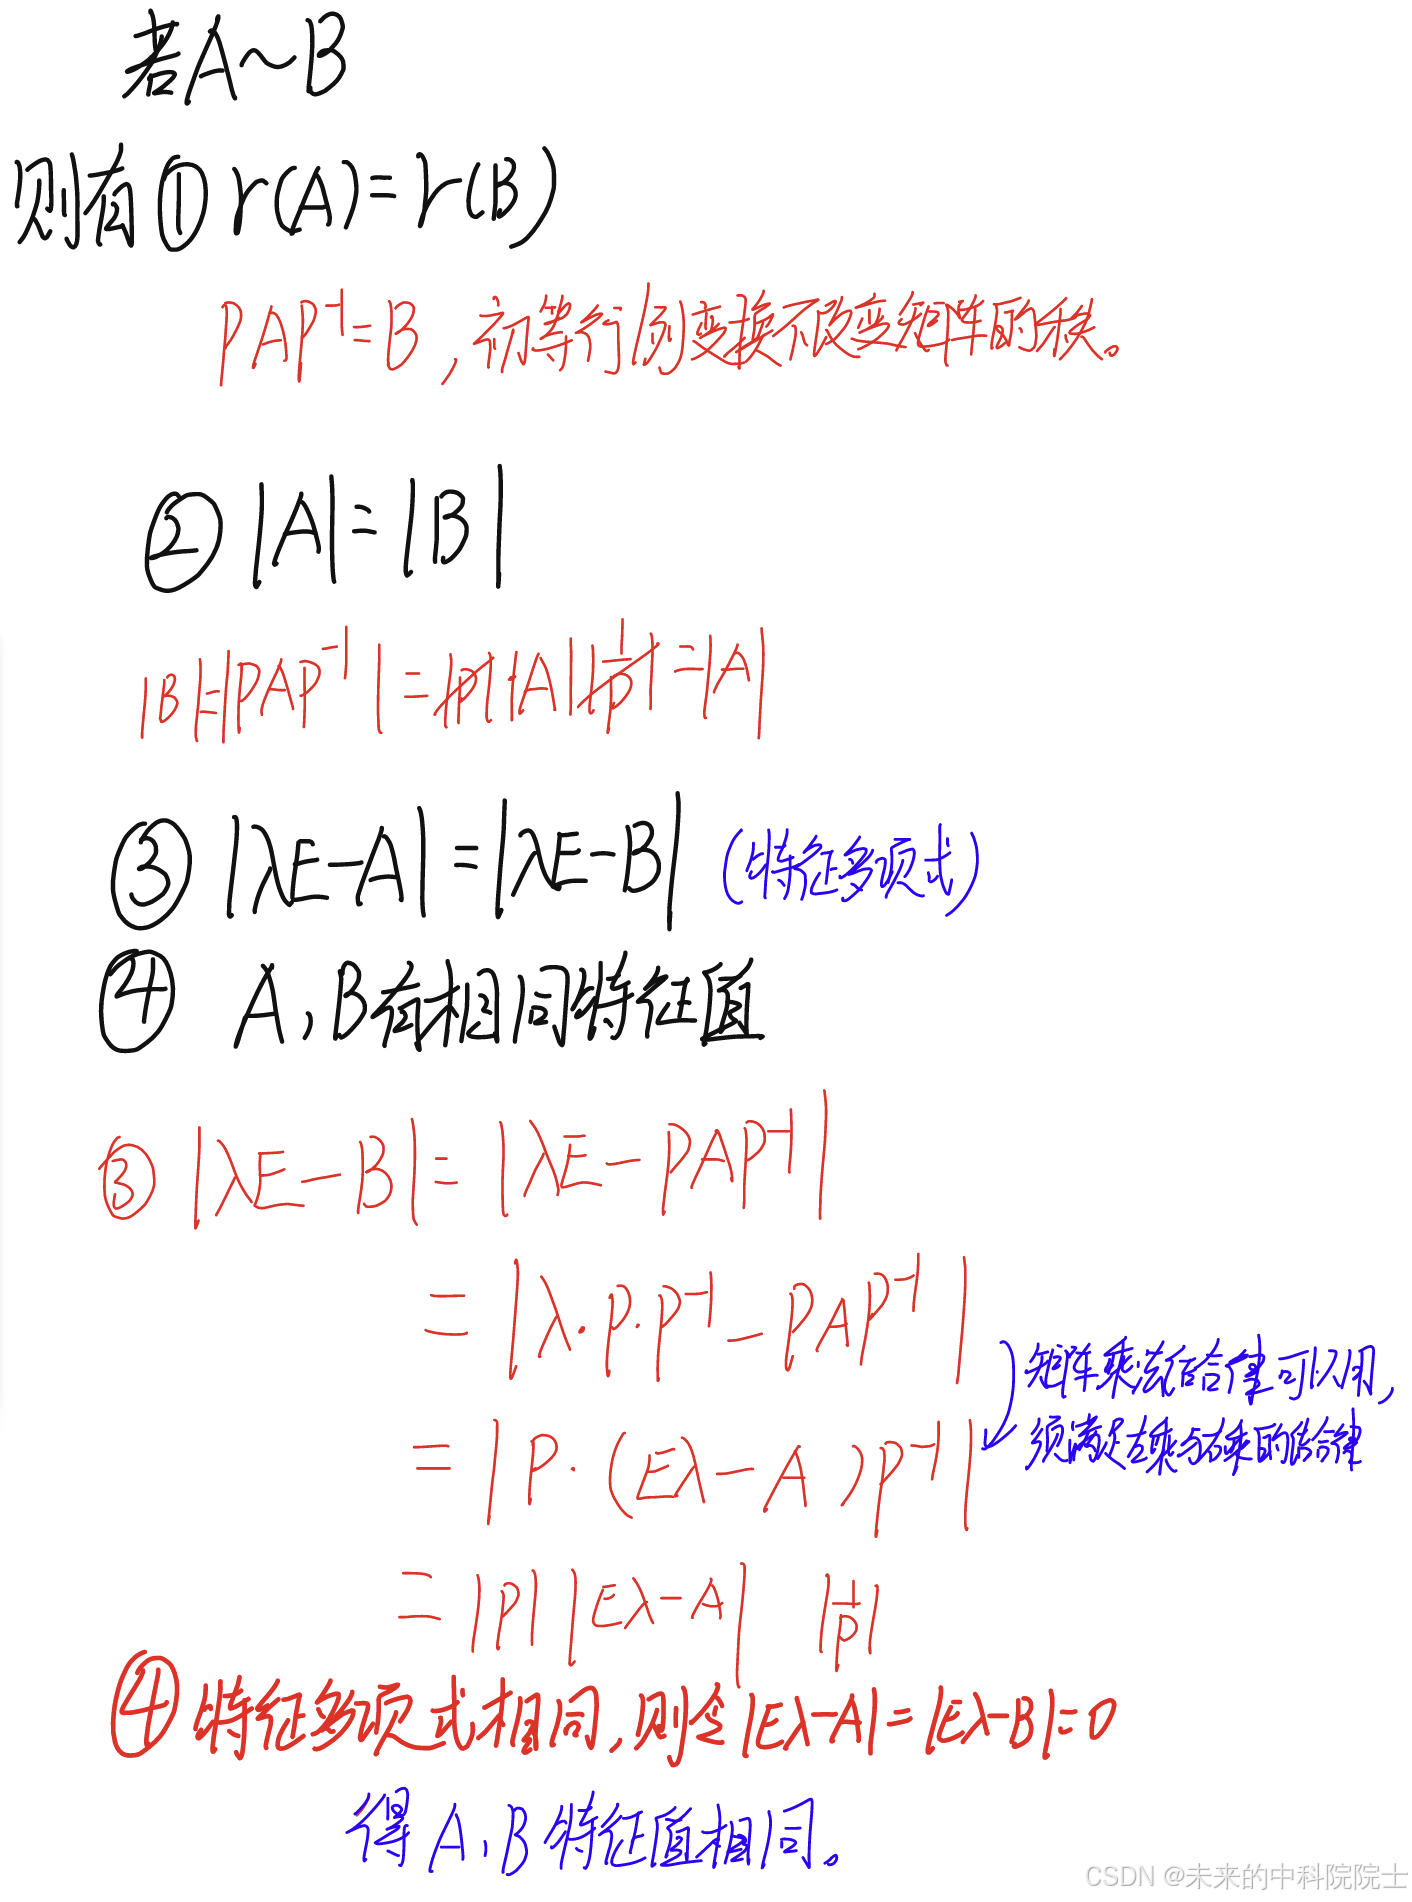 若A~B
则有①r(A)=r(B)
PAP⁻¹=B,初等行/列变换不改变矩阵的秩。
②|A|=|B|
|B|=|PAP⁻¹|=|P|·|A||1/P|=|A|
③|λE-A|=|λE-B|(特征多项式)
④A,B有相同特征值
③|λE-B|=|λE-PAP⁻¹|
=|λ·P·P⁻¹-PAP⁻¹|
矩阵乘法结合律可以用,
=|P·(Eλ-A)P⁻¹|
须满足左乘与右乘的结合律
=|P||Eλ-A||1/P|
④特征多项式相同,则令|Eλ-A|=|Eλ-B|=0
得A,B特征值相同。
CSDN @未来的中科院院士